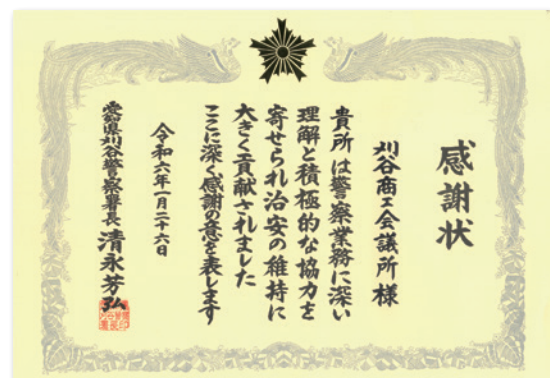 感謝状
刈谷商工会議所様
貴所は警察業務に深い
理解と積極的な協力を
寄せられ治安の維持に
大きく貢献されました
ここに深く感謝の意を表します
令和六年一月二十六日
愛知県刈谷警察署長 清永芳弘